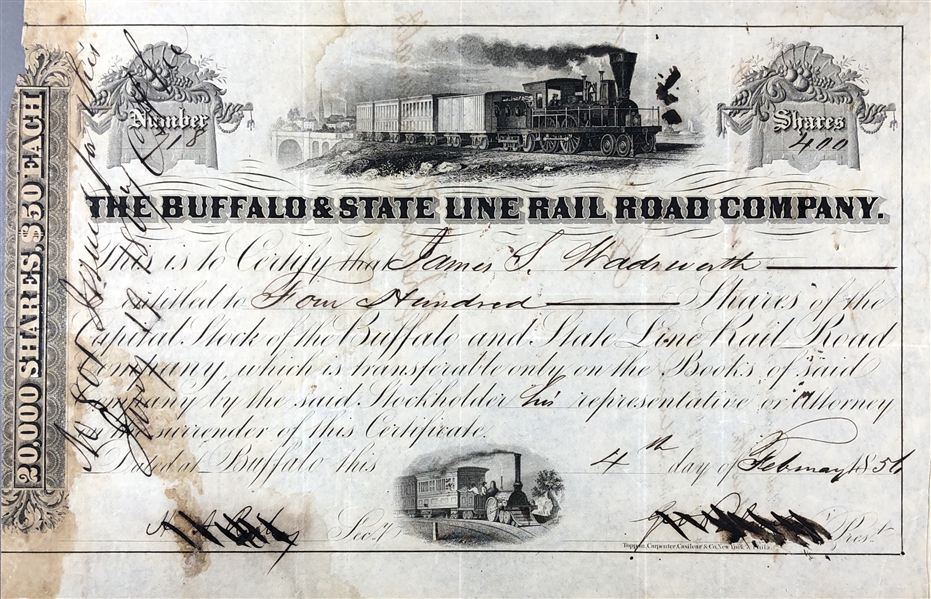 20,000 SHARES, $50 EACH
Number
18
Shares
400
THE BUFFALO & STATE LINE RAIL ROAD COMPANY.
This is to Certify that James S. Wadsworth
entitled to Four Hundred Shares of the
apital Stock of the Buffalo and State Line Rail Road
ompany, which is transferable only on the Books of said
ompany by the said Stockholder his representative or Attorney
surrender of this Certificate.
Dated at Buffalo this 4th day of February 1856
Sec.y
Pres.t
Toppan, Carpenter, Casilear & Co. New York & Phila.